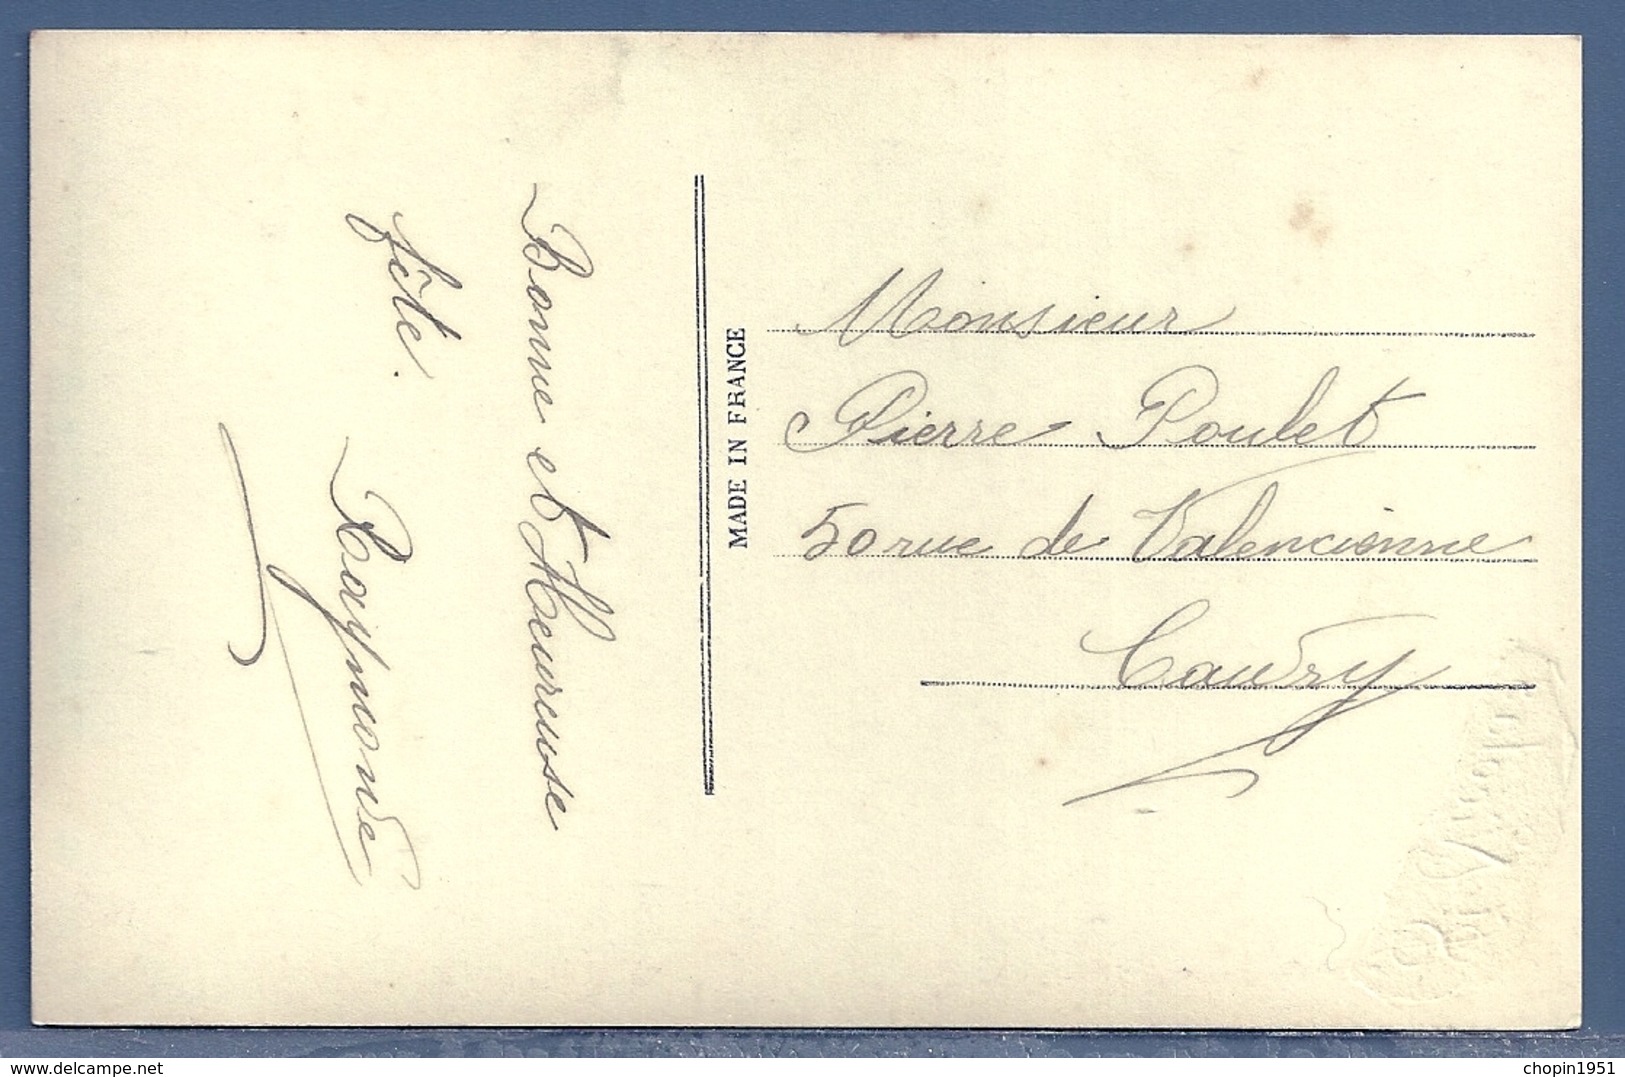 Bonne et Heureuse
fête.
Raymonde
MADE IN FRANCE
Monsieur
Pierre Poulet
50 rue de Valencienne
Caudry
delcampe.net
chopin1951